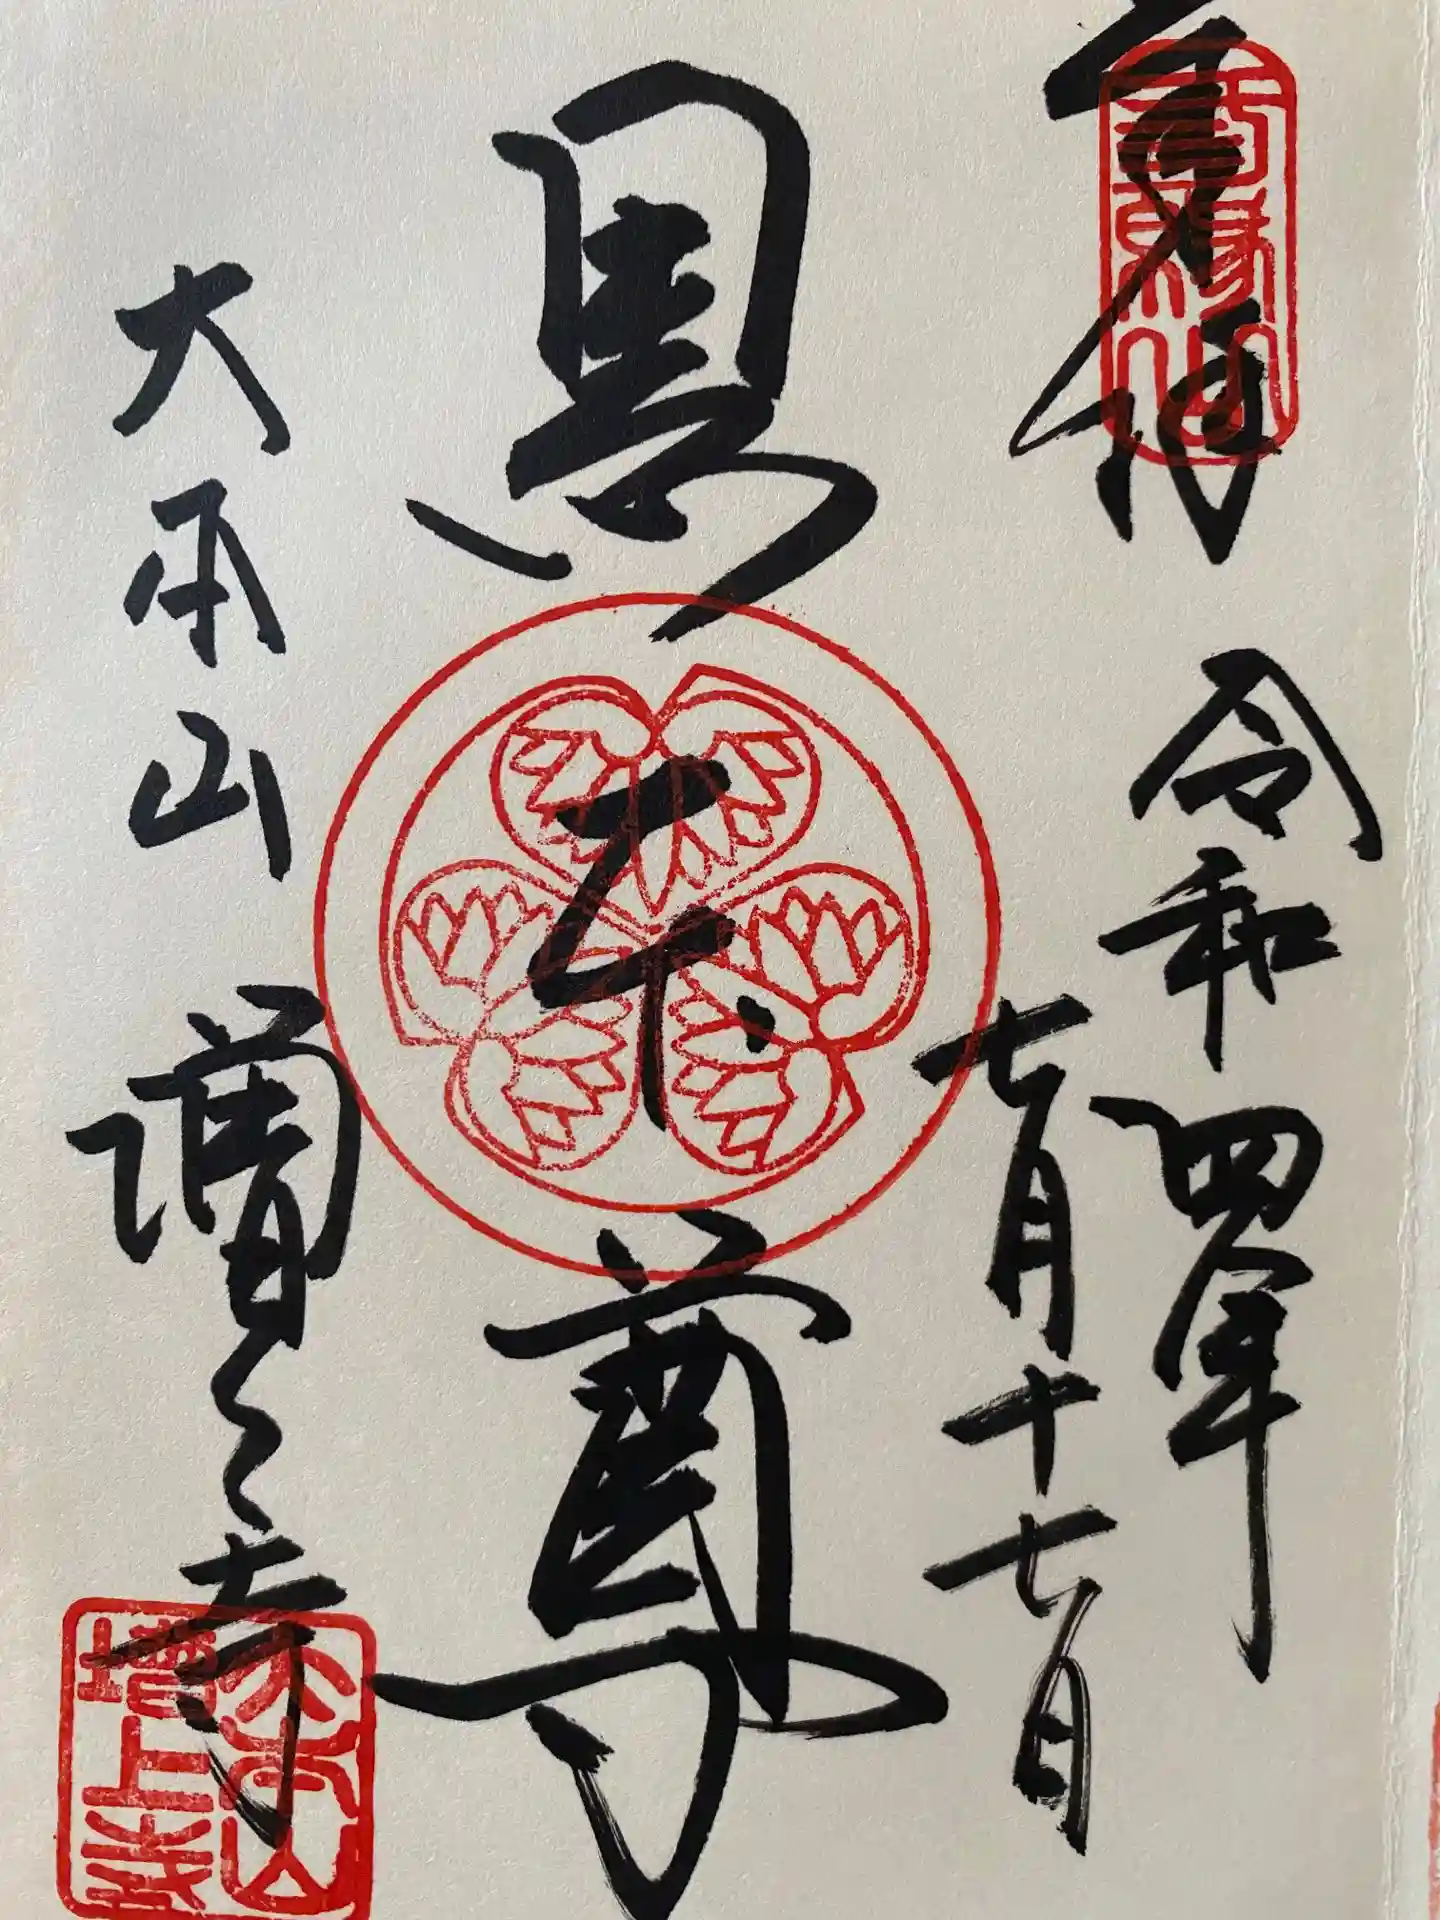 奉拝
令和四年
七月十七日
黒本尊
大本山 増上寺
大本山
増上寺